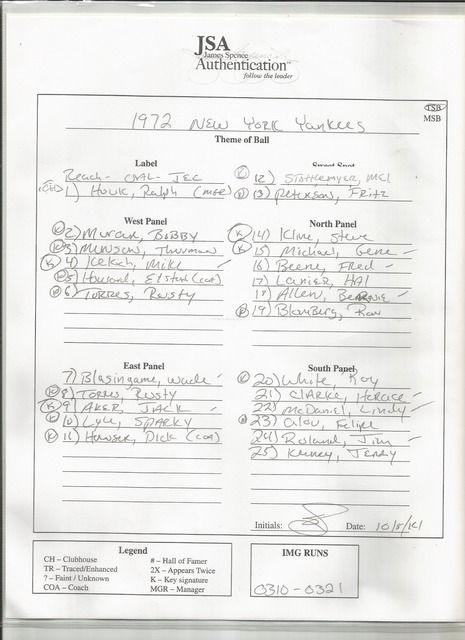 JSA
James Spence
Authentication™
follow the leader
TSB
MSB
1972 New York Yankees
Theme of Ball
Label
Reach - CHAL - JEC
1) Houk, Ralph (MGR)
Sweet Spot
12) Stottlemyre, Mel
13) Peterson, Fritz
West Panel
K 2) Murcer, Bobby
K 3) Munson, Thurman
K 4) Kekich, Mike
K 5) Howard, Elston (COA)
K 6) Torres, Rusty
North Panel
K 14) Kline, Steve
K 15) Michael, Gene
16) Beene, Fred
17) Lanier, Hal
18) Allen, Bernie
19) Blomberg, Ron
East Panel
7) Blasingame, Wade
K 8) Torres, Rusty
K 9) Aker, Jack
K 10) Lyle, Sparky
K 11) Howser, Dick (COA)
South Panel
K 20) White, Roy
21) Clarke, Horace
22) McDaniel, Lindy
23) Alou, Felipe
24) Roland, Jim
25) Kenney, Jerry
Initials: Date: 10/5/14
Legend
CH – Clubhouse
TR – Traced/Enhanced
? – Faint / Unknown
COA – Coach
# – Hall of Famer
2X – Appears Twice
K – Key signature
MGR – Manager
IMG RUNS
0310 - 0321